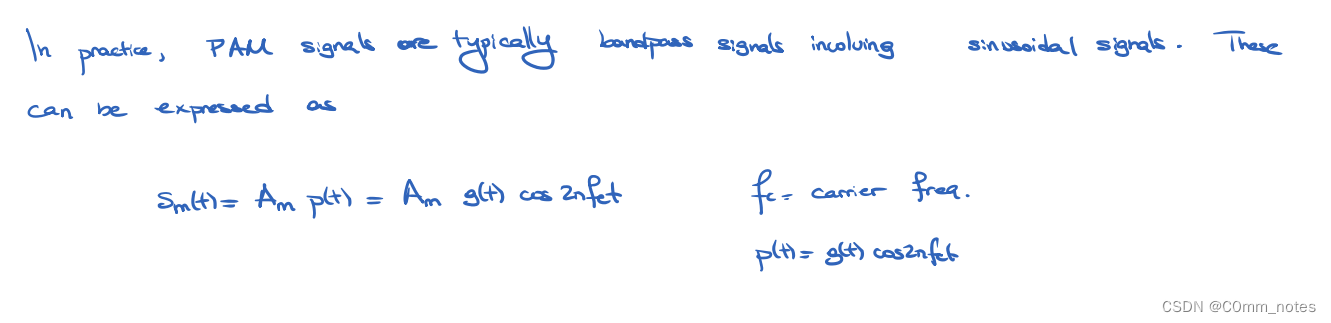 In practice, PAM signals are typically bandpass signals incolving sinusoidal signals. These
can be expressed as
Sm(t) = Am p(t) = Am g(t) cos 2πfct fc = carrier freq.
p(t) = g(t) cos2πfct
CSDN @C0mm_notes